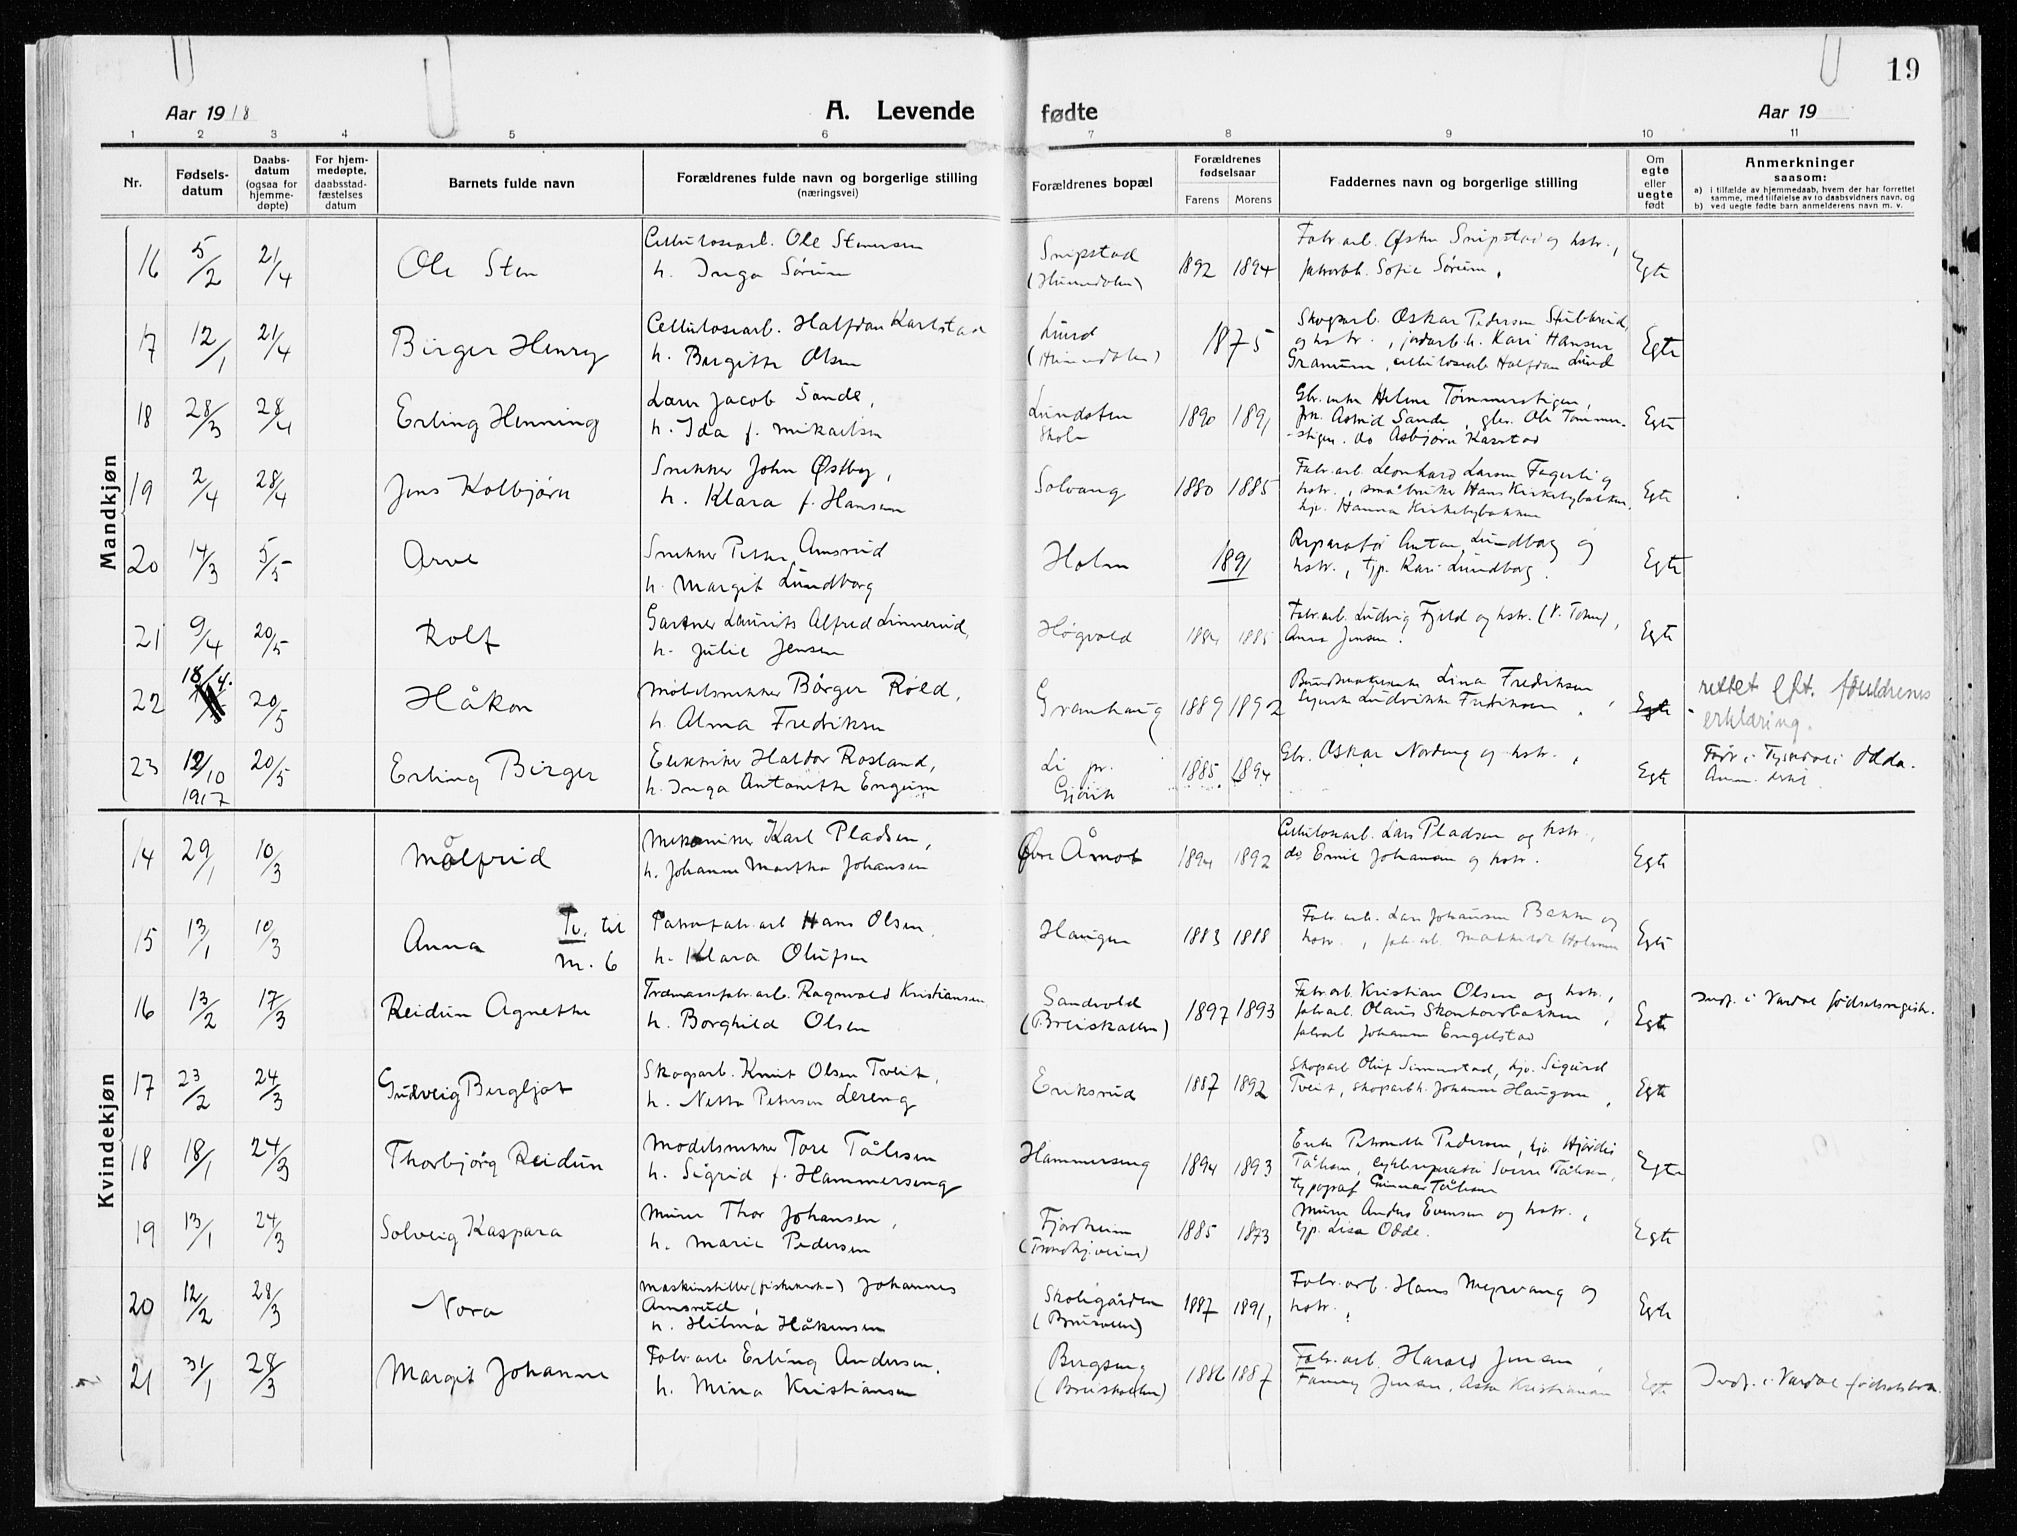 19
Aar 1918 A. Levende fødte Aar 19
1 2 3 4 5 6 7 8 9 10 11
Nr. Fødsels-datum Daabs-datum (ogsaa for hjemme-døpte) For hjem-medøpte, daabsstad-fæstelses datum Barnets fulde navn Forældrenes fulde navn og borgerlige stilling (næringsvei) Forældrenes bopæl Forældrenes fødselsaar Farens Morens Faddernes navn og borgerlige stilling Om egte eller uegte født Anmerkninger saasom:
a) i tilfælde av hjemmedaab, hvem der har forrettet samme, med tilføielse av to daabsvidners navn, og
b) ved uegte fødte barn anmelderens navn m. v.
Mandkjøn
16 5/2 21/4 Ole Sten Cellulosearb. Ole Stenersen Snipstad 1892 1894 Fabr.arb. Østen Snipstad og hstr., Egte
h. Inga Sørum (Hunndalen) fabrarbh. Sofie Sørum,
17 12/1 21/4 Birger Henry Cellulosearb. Halfdan Karlstad Lund 1875 Skogsarb. Oskar Pedersen Stubberud, Egte
h. Birgitte Olsen (Hunndalen) og hstr., jordarb.h. Kari Hansen
Granum, cellulosearb Halfdan Lund
18 28/3 28/4 Erling Henning Lærer Jacob Sande, Lundsten 1890 1891 Gbr.enke Helene Tømmerstigen, Egte
h. Ida f. Mikaelsen Skole frk. Astrid Sande, gbr. Ole Tømmer-
-stigen. do Asbjørn Kasstad
19 2/4 28/4 Jens Kolbjørn Snekker John Østby, Solvang 1880 1885 Fabr.arb. Leonhard Larsen Fagerli og Egte
h. Klara f. Hansen hstr., småbruker Hans Kirkebybakken,
tjp. Hanna Kirkebybakken
20 14/3 5/5 Arve Snekker Petter Amsrud Holm 1891 Reparatør Anton Lundborg og Egte
h. Margit Lundborg hstr., tjp. Kari Lundborg.
21 9/4 20/5 Rolf Gartner Laurits Alfred Linnerud, Høgvold 1884 1885 Fabr.arb. Ludvig Fjeld og hstr. (V. Toten), Egte
h. Julie Jensen Anna Jensen.
22 18/4. 20/5 Håkon Møbelsnekker Börger Röld, Granhaug 1889 1892 Lina Fredriksen, Egte rettet eft. foreldrenes
h. Alma Fredriksen Ludvikke Fredriksen. erklæring.
23 12/10 20/5 Erling Birger Haldor Rosland, Li pr. 1885 1894 Gbr. Oskar Nordeng og hstr., Egte Født i Tyssedal i Odda.
1917 h. Inga Antonette Engum Gjövik Anm. der
Kvindekjøn
14 29/1 10/3 Målfrid Mekaniker Karl Pladsen, Øvre Åmot 1894 1892 Cellulosearb. Lars Pladsen og hstr., Egte
h. Johanne Martha Johansen do Emil Johansen og hstr.
15 13/1 10/3 Anna Tv. til Hans Olsen, Haugen 1883 1888 Fabr.arb. Lars Johansen Bakke og Egte
M. 6 h. Klara Olufsen hstr., fab.arb. Mathilde Holmen
16 13/2 17/3 Reidun Agnethe Træmassefabr.arb. Ragnvald Kristiansen Sandvold 1897 1893 Fabr.arb. Kristian Olsen og hstr., Egte Indf. i Vardal fødselsregistr.
h. Borghild Olsen (Breiskallen) fabrarb. Olaus Skonhovdbakken,
fabrarb Johannes Engelstad
17 23/2 24/3 Gudveig Bergljot Skogsarb. Knut Olsen Tveit, Eriksrud 1887 1892 Skogsarb Oluf Simenstad, tjp. Sigurd Egte
h. Netta Petersen Lereng Tveit, skogsarbh. Johanne Haugom,
18 18/1 24/3 Thorbjörg Reidun Modelsnekker Tore Tålesen Hammerseng 1894 1893 Enke Petronelle Pedersen, tjp. Hjördis Egte
h. Sigrid f. Hammerseng Tålesen, cykkelreparatør Sverre Tålesen,
typograf Gunnar Tålesen
19 13/1 24/3 Solveig Kaspara Murer Thor Johansen, Fjordheim 1885 1873 Murer Anders Evensen og hstr., Egte
h. Marie Pedersen (Trondhjemsveien) tjp. Lisa Odde.
20 12/2 28/3 Nora Maskinstiller Johannes Skolegården 1887 1891, Fabr.arb. Hans Myrvang og Egte
Amsrud, (Bruvoll) hstr.,
h. Hilma Håkensen
21 31/1 28/3 Margit Johanne Fabr.arb Erling Andersen, Bergseng 1886 1887 Fabr.arb. Harald Jensen, Egte Indf. i Vardal fødselsbok.
h. Mina Kristiansen (Breiskallen) Fanny Jensen, Asta Kristiansen